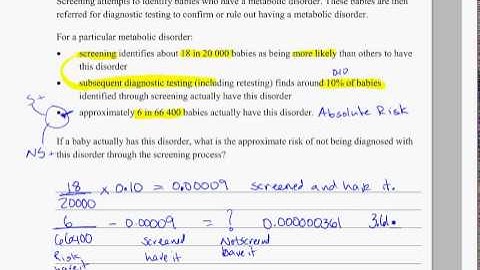 Screening attempts to identify babies who have a metabolic disorder. These babies are then
referred for diagnostic testing to confirm or rule out having a metabolic disorder.
For a particular metabolic disorder:
• screening identifies about 18 in 20 000 babies as being more likely than others to have
this disorder
D|D
• subsequent diagnostic testing (including retesting) finds around 10% of babies
identified through screening actually have this disorder
S+
• approximately 6 in 66 400 babies actually have this disorder. Absolute Risk
If a baby actually has this disorder, what is the approximate risk of not being diagnosed with
NS+ this disorder through the screening process?
18/20000 x 0.10 = 0.00009 screened and have it.
6/66400 - 0.00009 = ? 0.000000361 3.61.
Risk screened Notscrend
have it have it have it